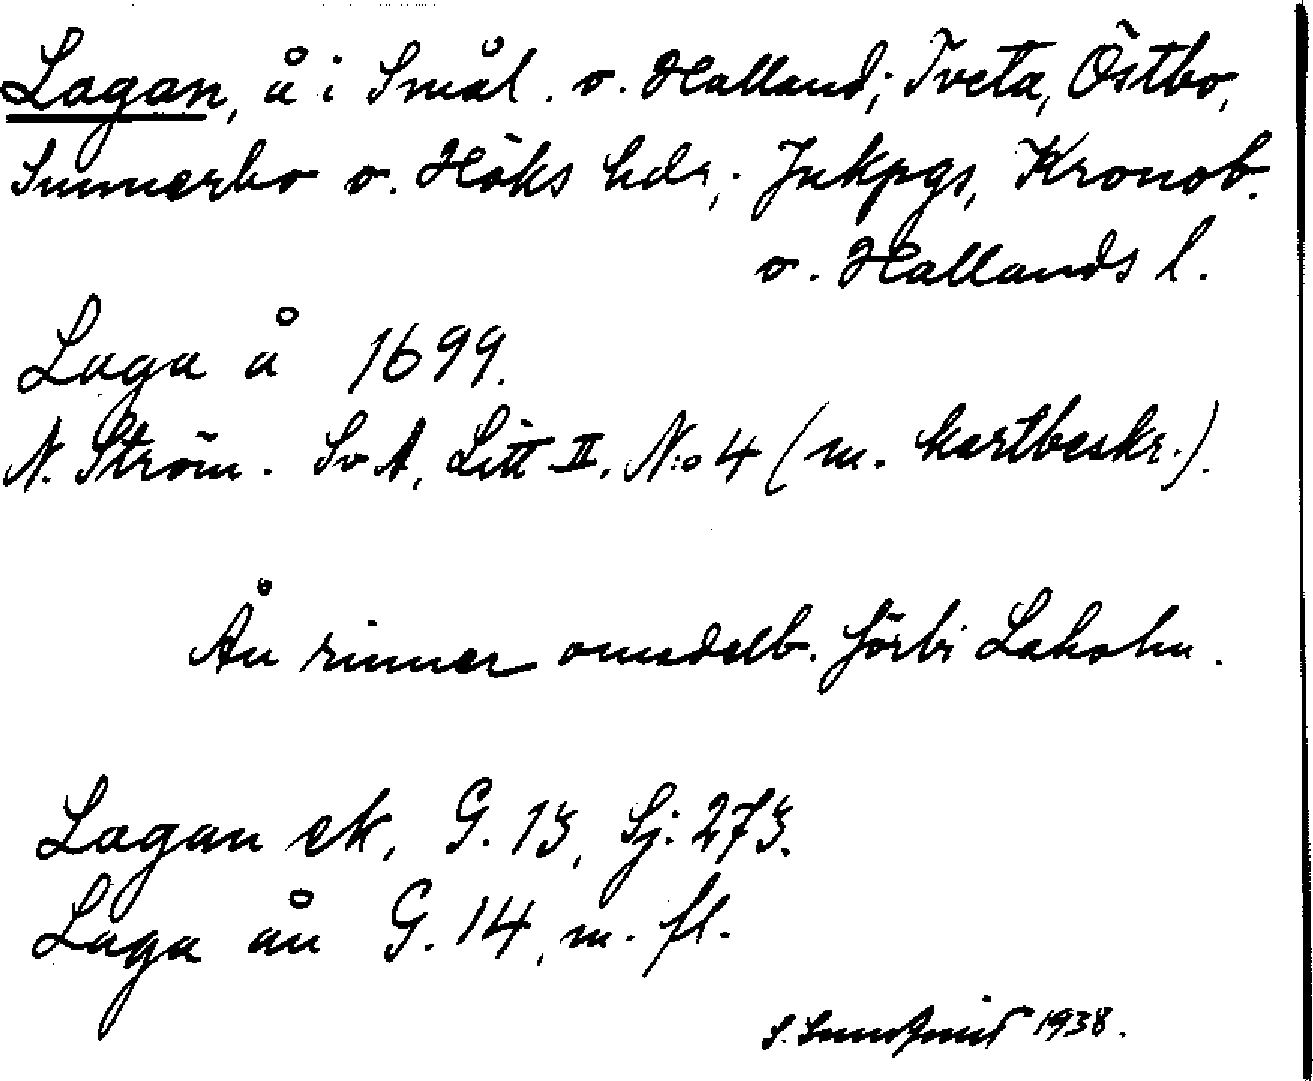 Lagan, å i Smål. o. Halland; Tveta, Östbo,
Sunnerbo o. Höks hdr,; Jnkpgs, Kronob.
o. Hallands l.
Laga å 1699.
N. Ström. Sv A, Litt II. N:o 4 (m. kartbeskr.).
Ån rinner omedelb. förbi Laholm.
Lagan ek, G. 13, Sj. 273.
Laga ån G. 14, m. fl.
S. Sundqvist 1938.